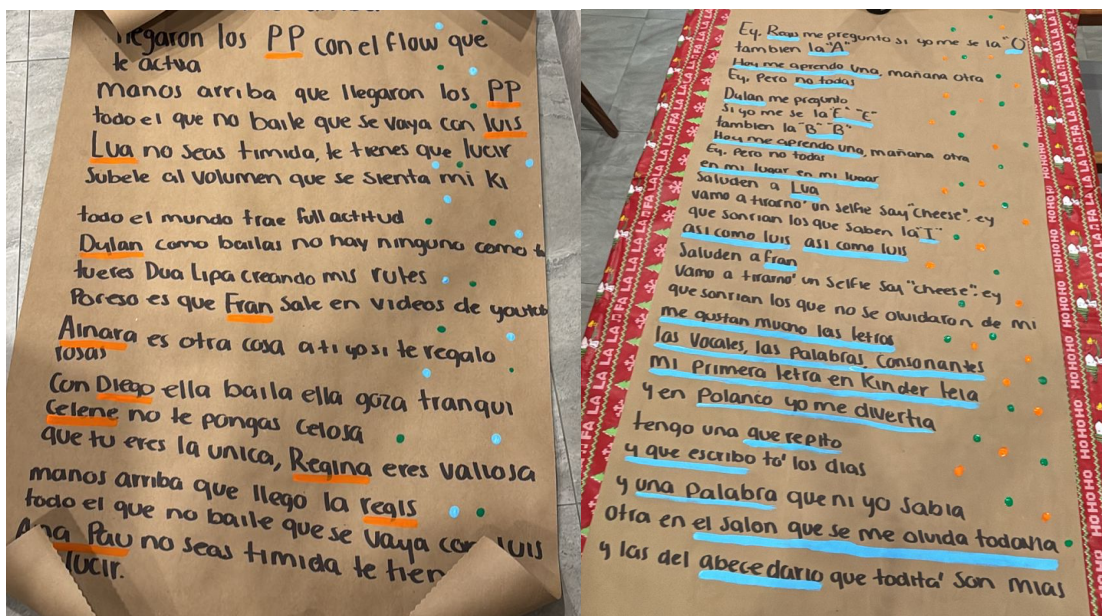 llegaron los PP con el flow que
te activa
manos arriba que llegaron los PP
todo el que no baile que se vaya con luis
Lua no seas timida, te tienes que lucir
Subele al volumen que se sienta mi Ki
todo el mundo trae full actitud
Dylan como bailas no hay ninguno como t
tueres Dua Lipa creando mis rutes
Poreso es que Fran sale en videos de youtub
Ainara es otra cosa a ti yo si te regalo
rosas
Con Diego ella baila ella goza tranqui
Celene no te pongas celosa
que tu eres la unica, Regina eres valiosa
manos arriba que llego la regis
todo el que no baile que se vaya con luis
Ana Pau no seas timida te tien
lucir.
Ey. Raw me pregunto si yo me se la "O"
tambien la "A"
Hoy me aprendo una, mañana otra
Ey. Pero no todas
Dylan me pregunto
Si yo me se la "E" "E"
tambien la "B" "B"
Hoy me aprendo una, mañana otra
Ey. Pero no todas
en mi lugar en mi lugar
Saluden a Lua
vamo a tirarno' un selfie say "cheese". ey
que sonrian los que saben la "I"
asi como luis asi como luis
Saluden a fran
Vamo a tirarno' un Selfie say "cheese". ey
que sonrian los que no se olvidaron de mi
me gustan mucho las letras
las vocales, las palabras, consonantes
mi primera letra en Kinder leia
y en Polanco yo me divertia
tengo una que repito
y que escribo to' los dias
y una palabra que ni yo sabia
otra en el salon que se me olvida todavia
y las del abecedario que todita' son mias
FA LA LA LA LA
HO HO HO